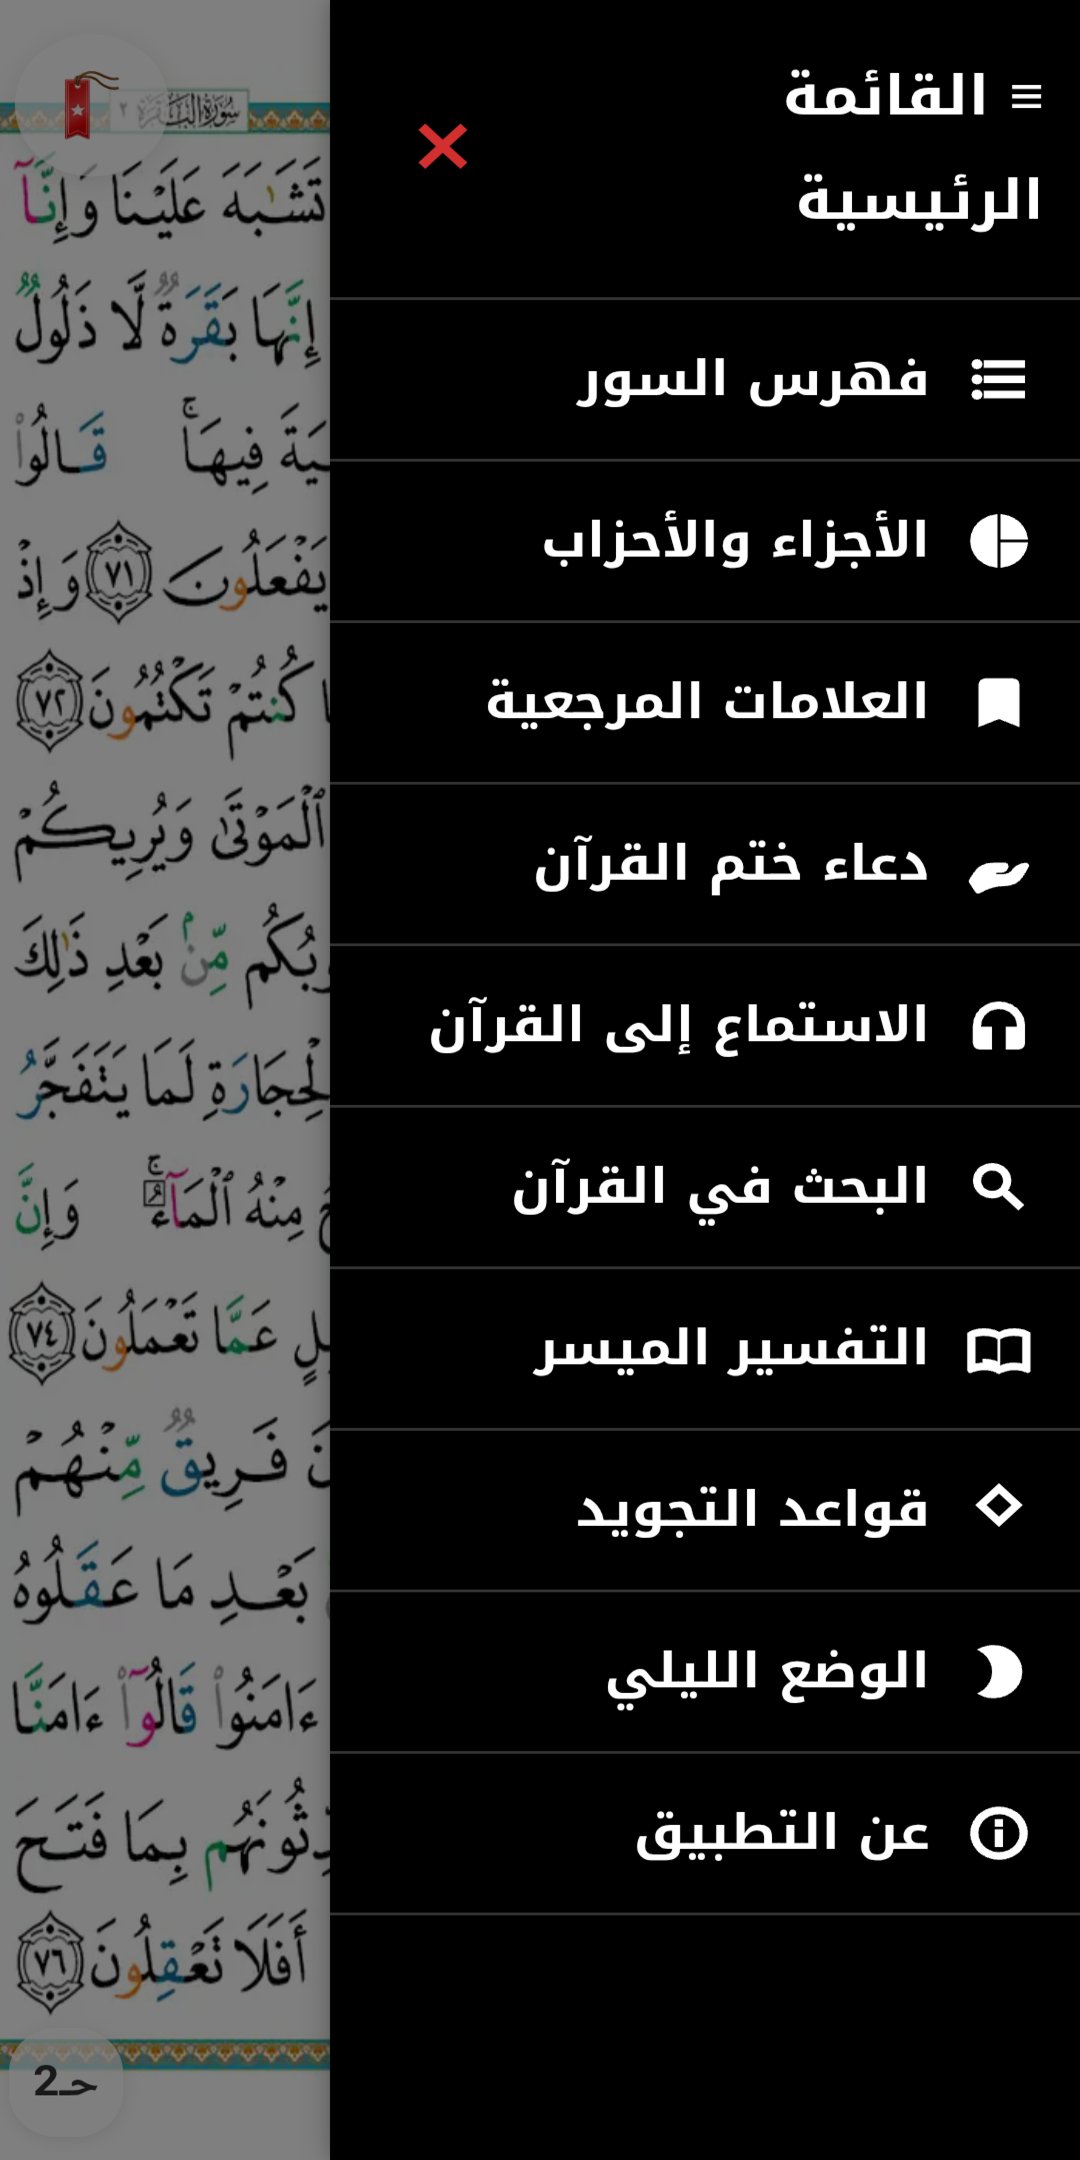 القائمة
الرئيسية
فهرس السور
الأجزاء والأحزاب
العلامات المرجعية
دعاء ختم القرآن
الاستماع إلى القرآن
البحث في القرآن
التفسير الميسر
قواعد التجويد
الوضع الليلي
عن التطبيق
سُورَةُ البَقَرَةِ ٢
تَشَٰبَهَ عَلَيۡنَا وَإِنَّآ
إِنَّهَا بَقَرَةٞ لَّا ذَلُولٞ
فِيهَاۚ قَالُواْ
يَفۡعَلُونَ ٧١ وَإِذۡ
كُنتُمۡ تَكۡتُمُونَ ٧٢
ٱلۡمَوۡتَىٰ وَيُرِيكُمۡ
مِّنۢ بَعۡدِ ذَٰلِكَ
لَمَا يَتَفَجَّرُ
مِنۡهُ ٱلۡمَآءُۚ وَإِنَّ
عَمَّا تَعۡمَلُونَ ٧٤
فَرِيقٞ مِّنۡهُمۡ
بَعۡدِ مَا عَقَلُوهُ
ءَامَنُواْ قَالُوٓاْ ءَامَنَّا
بِمَا فَتَحَ
أَفَلَا تَعۡقِلُونَ ٧٦
حـ2